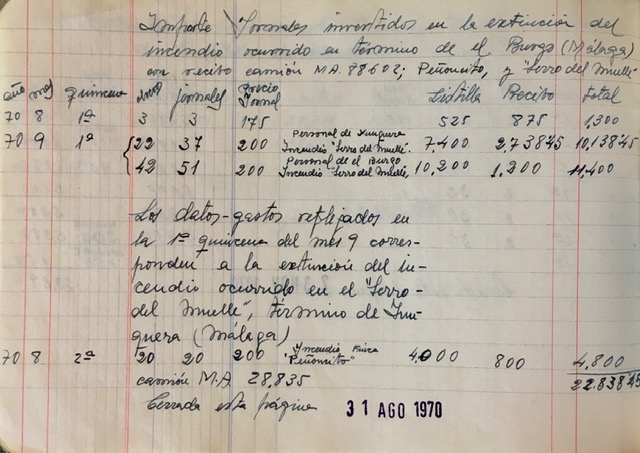 Importe Jornales invertidos en la extinción del
incendio ocurrido en término de el Burgo (Málaga)
con recibo camión MA. 88602; Peñoncito, y "Serro del Muelle"
año mes quincena obreros jornales precio Jornal Listilla Recibo total
70 8 1ª 3 3 175 525 875 1,300
70 9 1ª 22 37 200 Personal de Yunquera Incendio "Serro del Muelle". 7,400 2,738'45 10,138'45
42 51 200 Personal de el Burgo Incendio "Serro del Muelle". 10,200 1.200 11,400
Los datos-gastos reflejados en
la 1ª quincena del mes 9 corres-
ponden a la extinción del in-
cendio ocurrido en el "Serro-
del Muelle", término de Yun-
quera (Málaga)
70 8 2ª 20 20 200 Incendio Finca "Peñoncito" 4.000 800 4,800
camión M.A 28,835 22.838'45
Cerrada esta página 31 AGO 1970